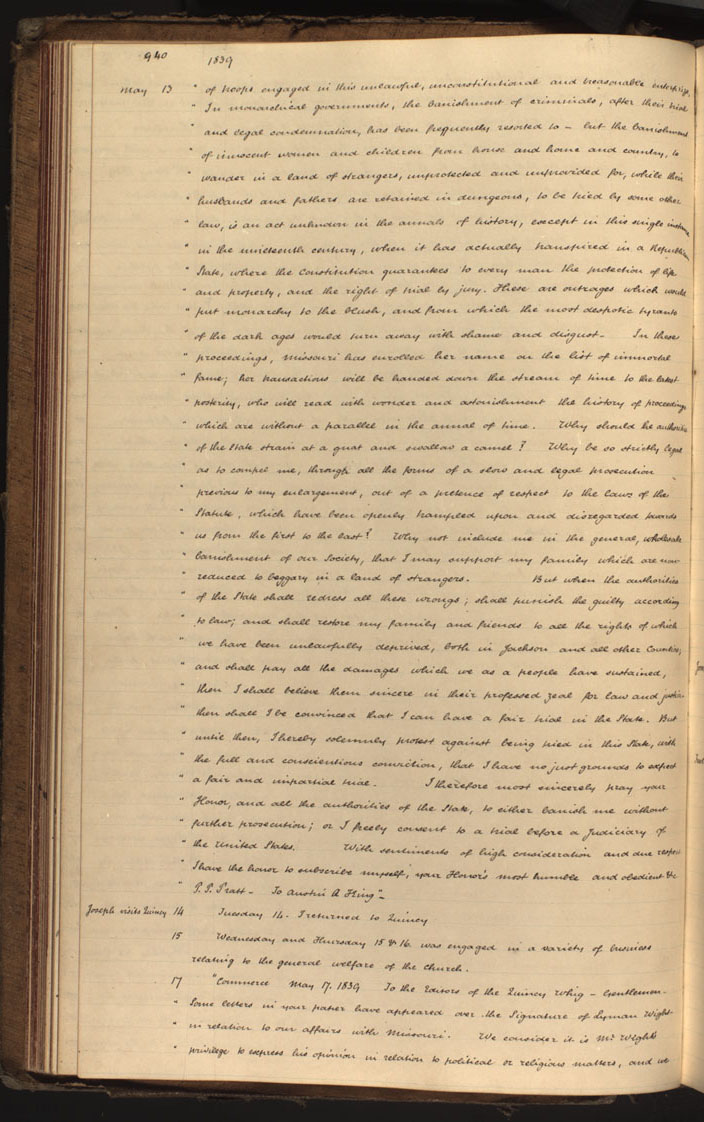 940 1839
May 13 " of troops engaged in this unlawful, unconstitutional and treasonable enterprize.
" In monarchical governments, the banishment of criminals, after their trial
" and legal condemnation, has been frequently resorted to – but the banishment
" of innocent women and children from house and home and country, to
" wander in a land of strangers, unprotected and unprovided for, while their
" husbands and fathers are retained in dungeons, to be tried by some other
" law, is an act unknown in the annals of history, except in this single instance
" in the nineteenth century, when it has actually transpired in a Republican
" State, where the Constitution guarantees to every man the protection of life
" and property, and the right of trial by jury. These are outrages which would
" put monarchy to the blush, and from which the most despotic tyrants
" of the dark ages would turn away with shame and disgust – In these
" proceedings, Missouri has enrolled her name on the list of immortal
" fame; her transactions will be handed down the stream of time to the latest
" posterity, who will read with wonder and astonishment the history of proceedings
" which are without a parallel in the annal of time. Why should the authorities
" of the State strain at a gnat and swallow a camel? Why be so strictly legal
" as to compel me, through all the forms of a slow and legal prosecution
" previous to my enlargement, out of a pretence of respect to the laws of the
" Statute, which have been openly trampled upon and disregarded towards
" us from the first to the last? Why not include me in the general, wholesale
" banishment of our Society, that I may support my family which are now
" reduced to beggary in a land of strangers. But when the authorities
" of the State shall redress all these wrongs; shall punish the guilty according
" to law; and shall restore my family and friends to all the rights of which
" we have been unlawfully deprived, both in Jackson and all other Counties;
" and shall pay all the damages which we as a people have sustained,
" then I shall believe them sincere in their professed zeal for law and justice
" then shall I be convinced that I can have a fair trial in the State. But
" until then, I hereby solemnly protest against being tried in this State, with
" the full and conscientious conviction, that I have no just grounds to expect
" a fair and impartial trial. I therefore most sincerely pray your
" Honor, and all the authorities of the State, to either banish me without
" further prosecution; or I freely consent to a trial before a Judiciary of
" the United States. With sentiments of high consideration and due respect
" I have the honor to subscribe myself, your Honor's most humble and obedient &c
" P. P. Pratt – To Austin A King" –
Joseph visits Quincy 14 Tuesday 14. I returned to Quincy
15 Wednesday and Thursday 15 & 16. was engaged in a variety of business
relating to the general welfare of the church.
17 "Commerce May 17. 1839 To the Editors of the Quincy Whig – Gentlemen –
" Some letters in your paper have appeared over the Signature of Lyman Wight
" in relation to our affairs with Missouri. We consider it is Mr Wight's
" privilege to express his opinion in relation to political or religious matters, and we